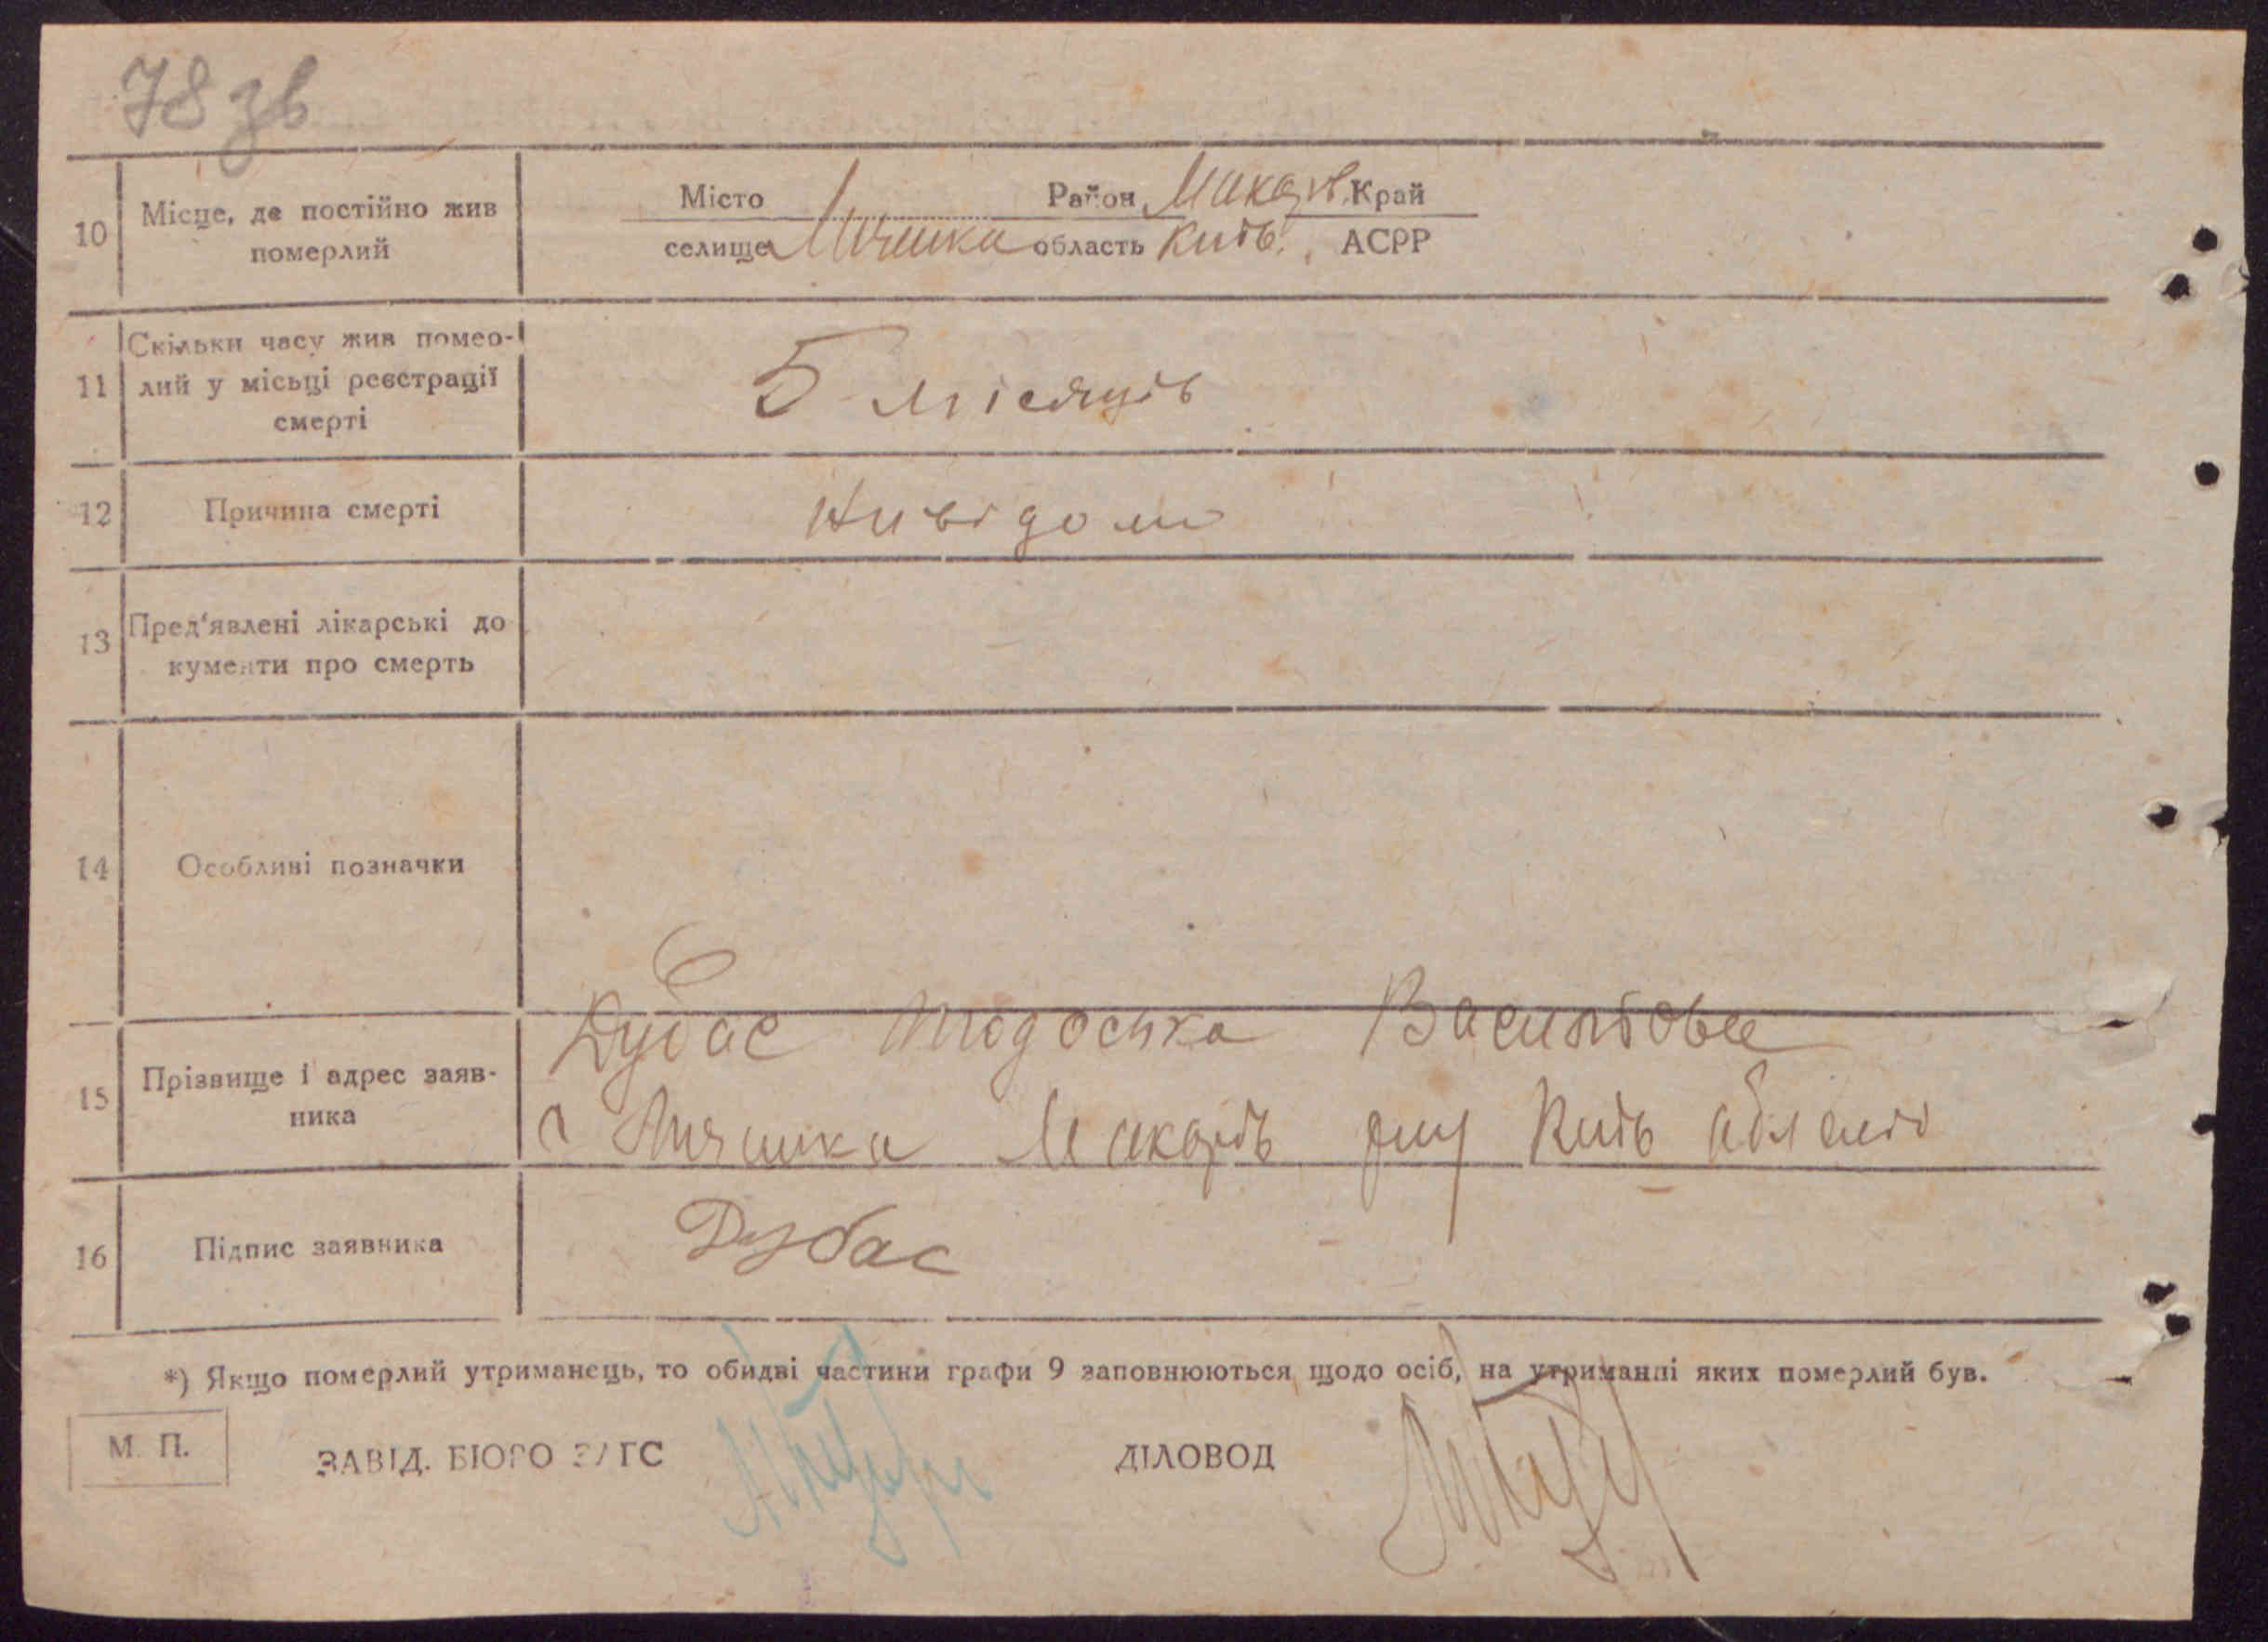 78 зв
10 Місце, де постійно жив померлий
Місто Район Макарів. Край
селище Личанка область Київ. АСРР
11 Скільки часу жив померлий у місьці реєстрації смерті
5 місяців
12 Причина смерті
Нивідомо
13 Пред'явлені лікарські документи про смерть
14 Особливі позначки
15 Прізвище і адрес заявника
Дубас Тодоська Васильовна
с Личанка Макарів рну Київ области
16 Підпис заявника
Дубас
*) Якщо померлий утриманець, то обидві частини графи 9 заповнюються щодо осіб, на утриманні яких померлий був.
М. П. ЗАВІД. БЮРО ЗАГС ДІЛОВОД